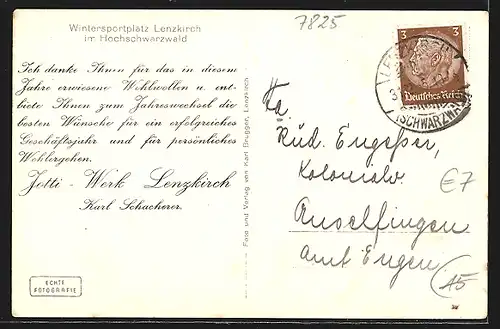 Wintersportplatz Lenzkirch
im Hochschwarzwald
7825
3 3
Deutsches Reich
LENZKIRCH
(SCHWARZWALD)
Ich danke Ihnen für das in diesem
Jahre erwiesene Wohlwollen u. ent-
biete Ihnen zum Jahreswechsel die
besten Wünsche für ein erfolgreiches
Geschäftsjahr und für persönliches
Wohlergehen.
Jotti - Werk Lenzkirch
Karl Schacherer.
ECHTE
FOTOGRAFIE
Foto und Verlag von Karl Brugger, Lenzkirch
Fa.
Rud. Engesser,
Kolonialw.
Anselfingen
Amt Engen
E7
A5